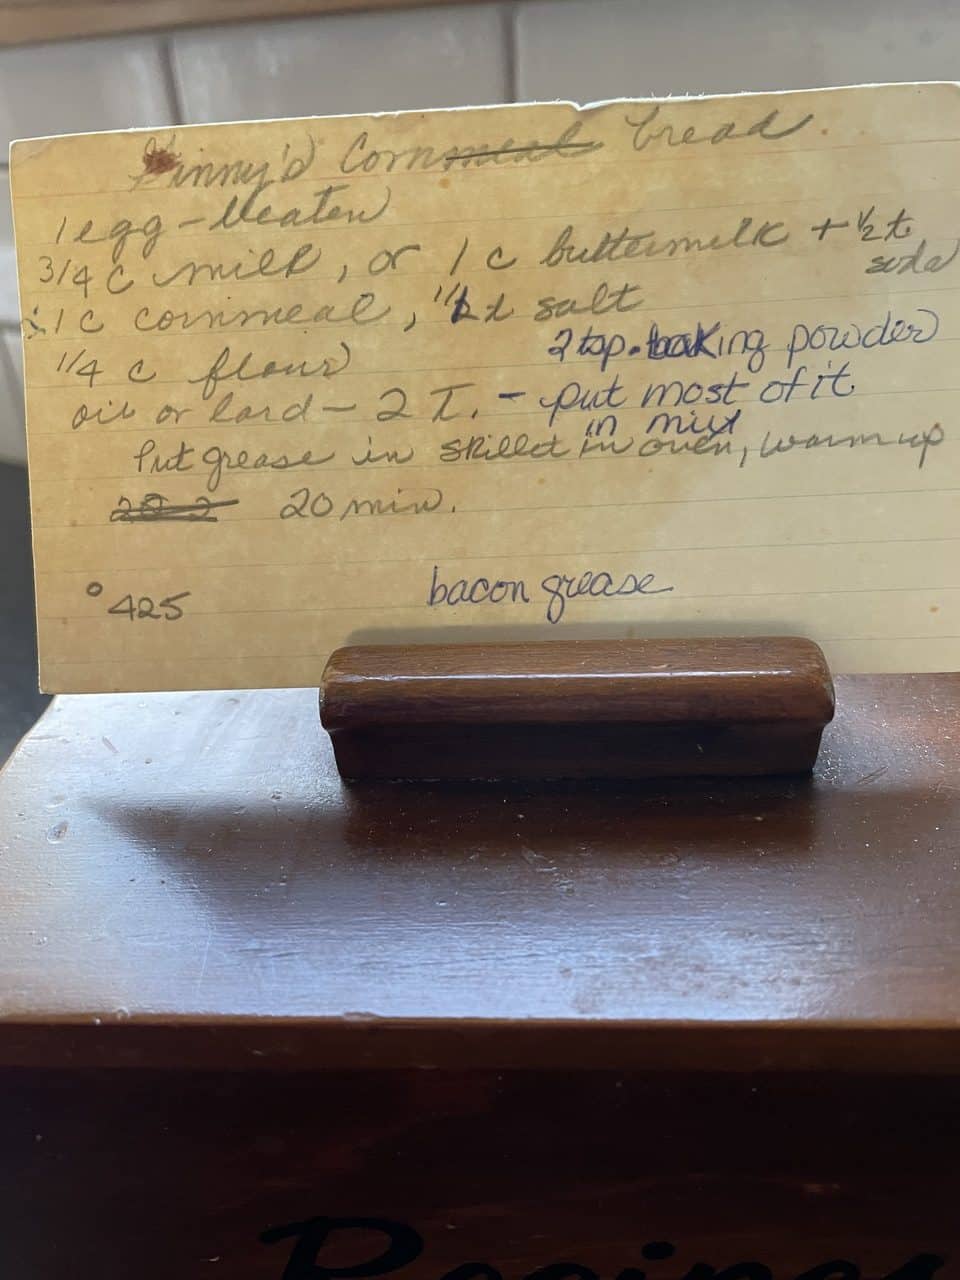 Ginny's Corn bread
1 egg - beaten
3/4 c milk, or 1 c buttermilk + 1/2 t. soda
1 c cornmeal, 1/2 t salt
1/4 c flour 2 tsp. baking powder
oil or lard - 2 T. - put most of it in mix
Put grease in skillet in oven, warm up
20 min.
° 425 bacon grease
Recipes